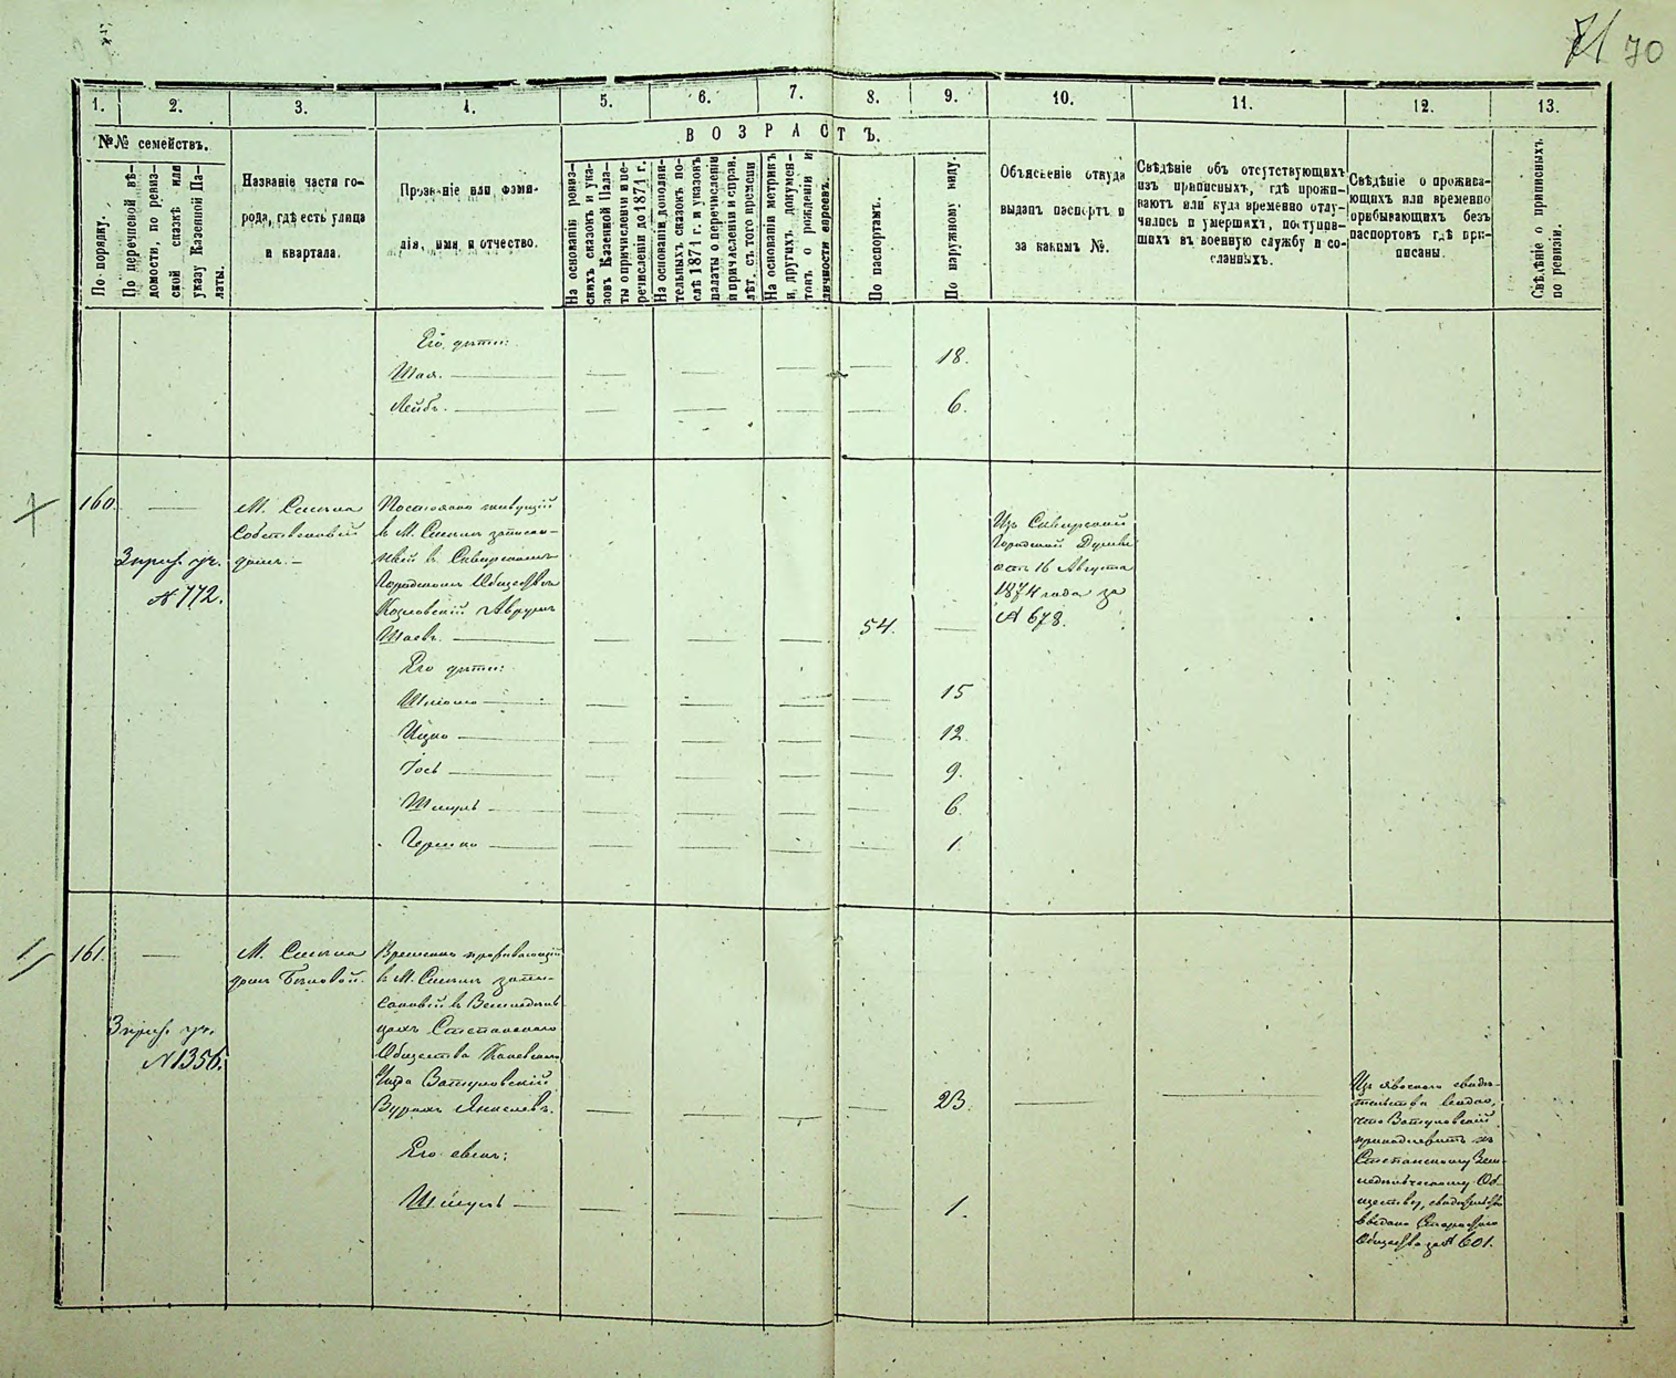 71 70
1. 2. 3. 4. 5. 6. 7. 8. 9. 10. 11. 12. 13.
№№ семействъ.
По порядку.
По перечневой вѣ-
домости, по ревиз-
ской сказкѣ или
указу Казенной Па-
латы.
Названіе части го-
рода, гдѣ есть улица
и квартала.
Прозваніе или фами-
лія, имя и отчество.
ВОЗРАСТЪ.
На основаніи ревиз-
скихъ сказокъ и ука-
зовъ Казенной Пала-
ты о причисленіи и пе-
речисленіи до 1874 г.
На основаніи дополни-
тельныхъ сказокъ по-
слѣ 1874 г. и указовъ
палаты о перечисленіи
и причисленіи и справ.
лѣт. съ того времени
На основаніи метрикъ
и другихъ докумен-
товъ о рожденіи и
личности евреевъ.
По паспортамъ.
По наружному виду.
Объясненіе откуда
выданъ паспортъ и
за какимъ №.
Свѣдѣніе объ отсутствующихъ
изъ приписныхъ, гдѣ прожи-
ваютъ или куда временно отлу-
чились и умершихъ, поступив-
шихъ въ военную службу и со-
сланныхъ.
Свѣдѣніе о прожива-
ющихъ или временно
прибывающихъ безъ
паспортовъ гдѣ при-
писаны.
Свѣдѣніе о приписныхъ
по ревизіи.
Его дѣти:
Шая. 18.
Лейбъ. 6.
160.
3 приз. уч.
№ 772.
М. Смѣла
Собственный
домъ.
Постоянно живущій
въ М. Смѣлѣ записан-
ный въ Сквирскомъ
Городскомъ Обществѣ
Козловскій Аврумъ
Шаевъ. 54.
Изъ Сквирской
Городской Думы
отъ 16 Августа
1874 года за
№ 678.
Его дѣти:
Шліома 15
Ицко 12.
Іось 9.
Шмуль 6.
Гершко 1.
161.
3 приз. уч.
№ 1356.
М. Смѣла
домъ Бѣловой.
Временно проживающій
въ М. Смѣлѣ запи-
санный въ Земледѣль-
цахъ Степанскаго
Общества Каневскаго
Уѣзда Ватуловскій
Янкелевъ. 23.
Изъ явочнаго свидѣ-
тельства видно,
что Ватуловскій
принадлежитъ къ
Степанскому Зем-
ледѣльческому Об-
ществу, свидѣтельство
выдано
Общества за № 601.
Его сынъ:
Шмуль 1.